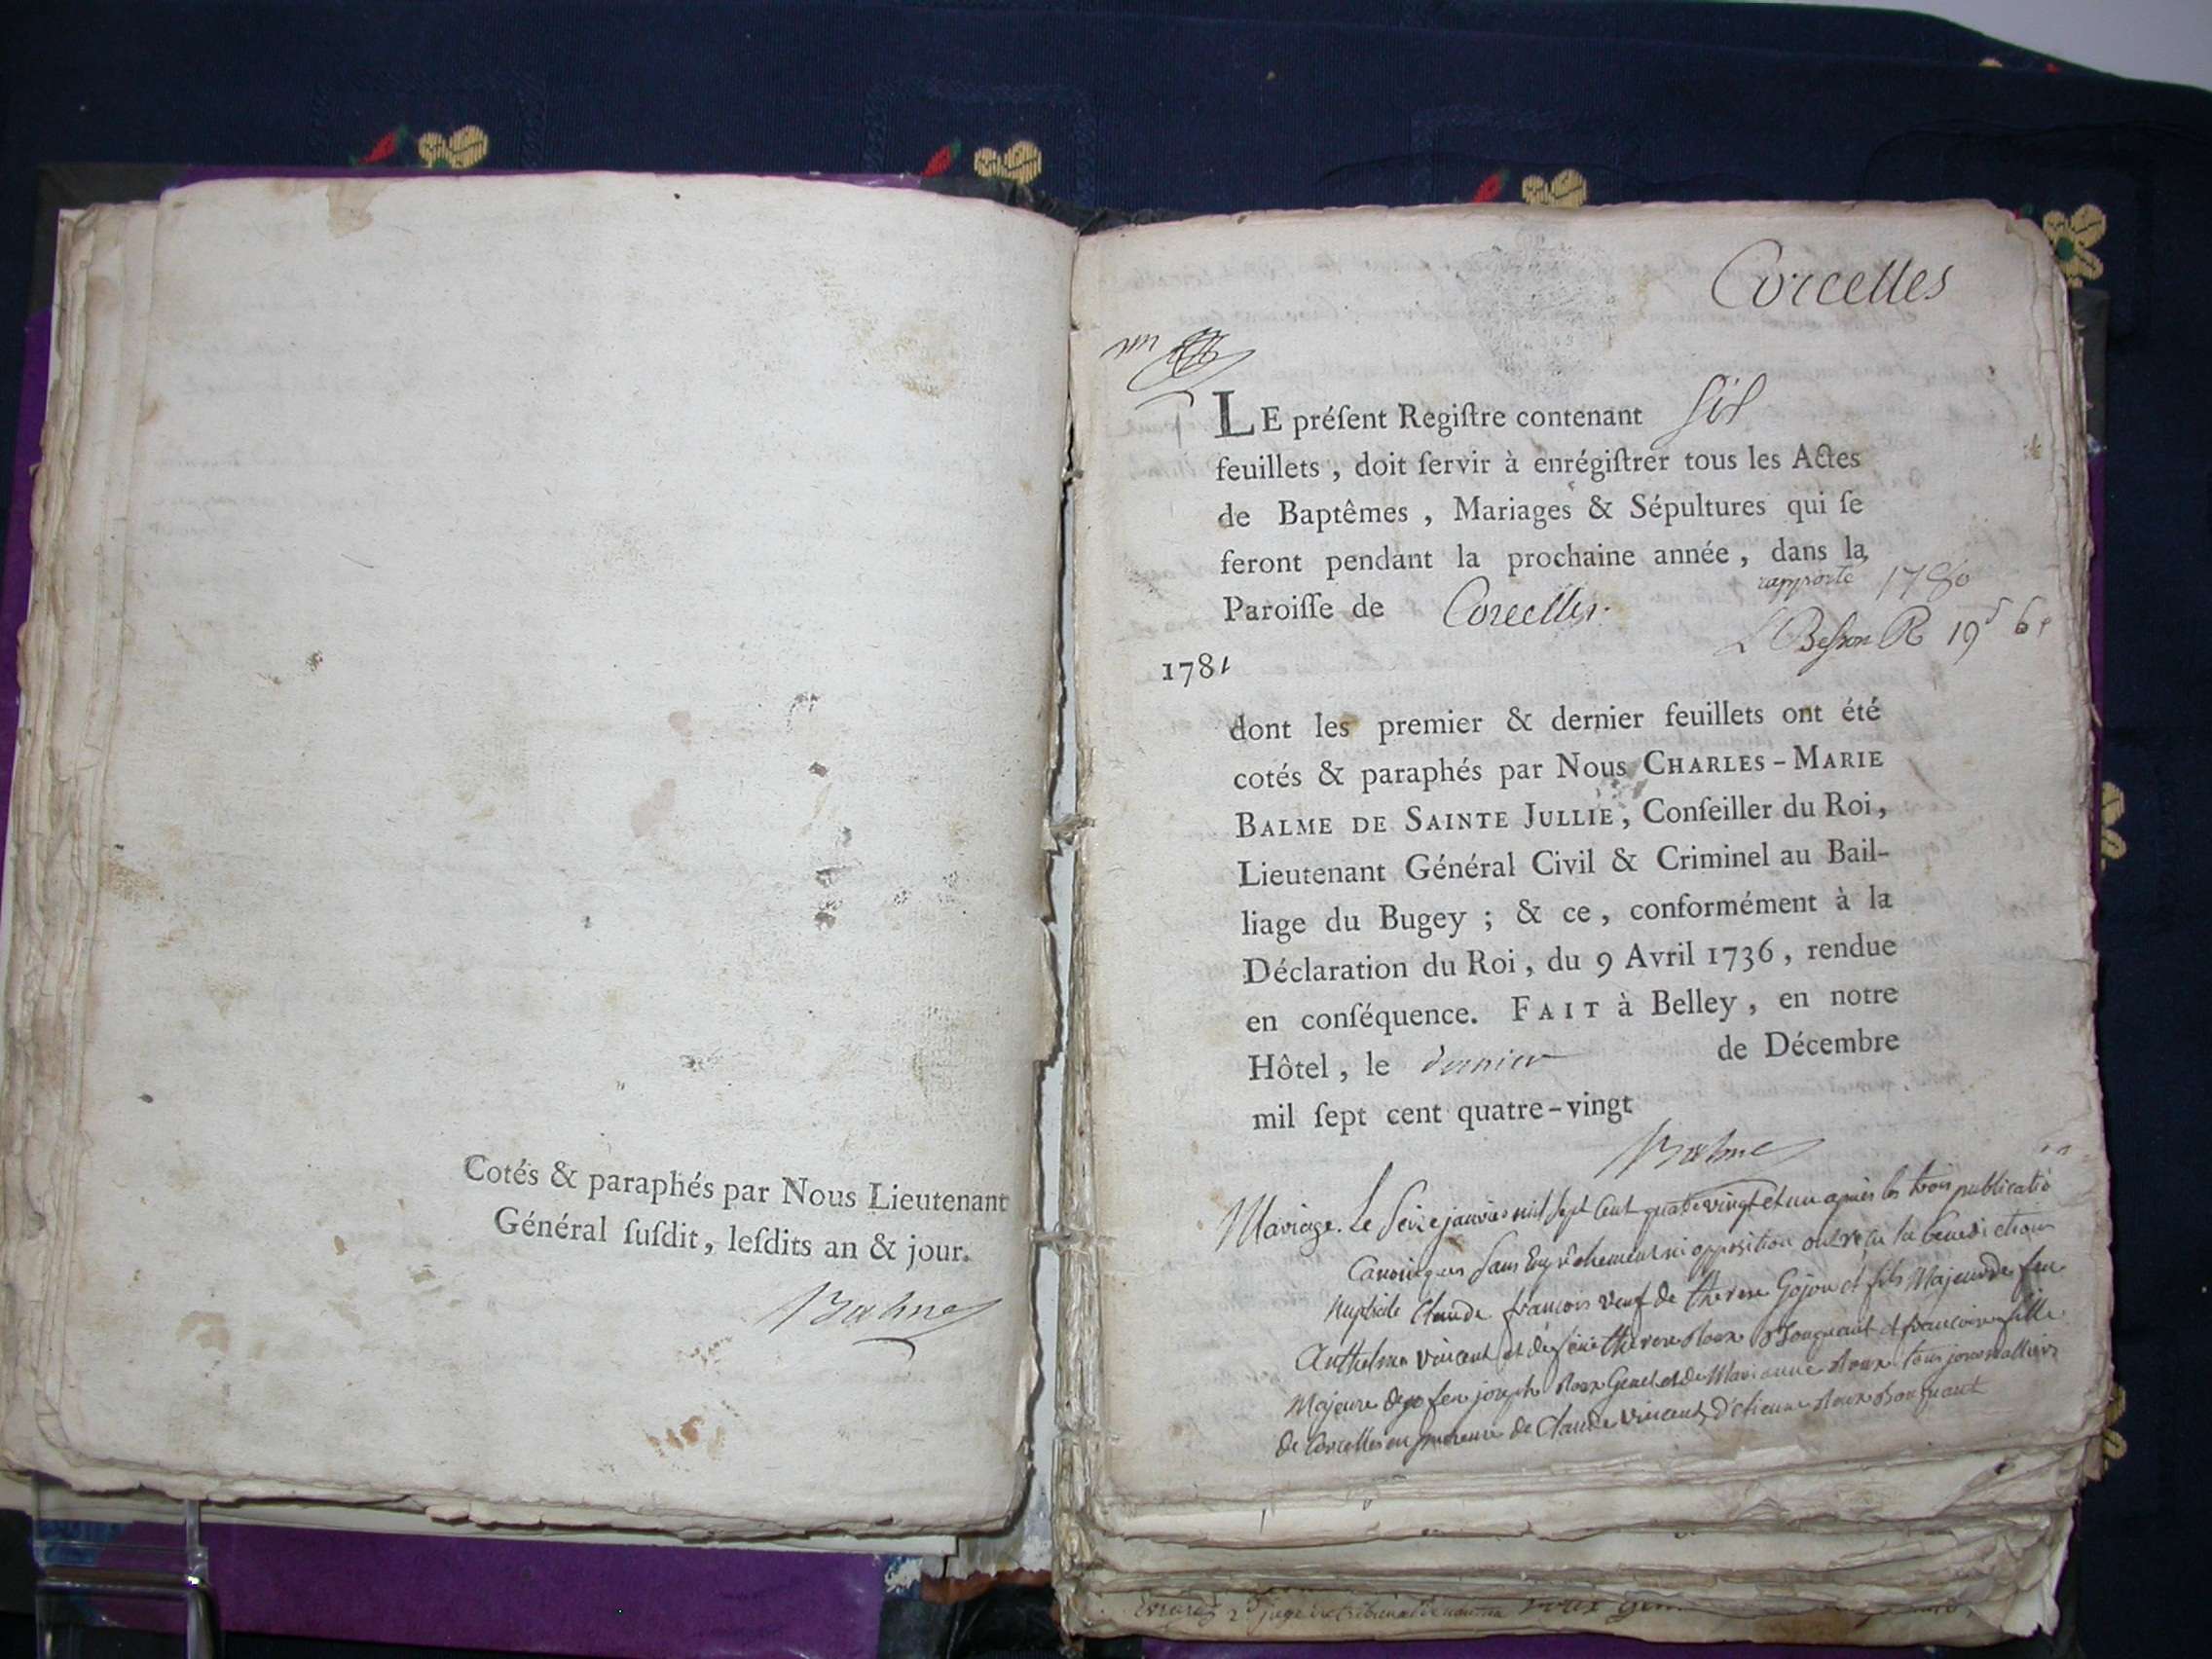 Cotés & paraphés par Nous Lieutenant
Général ſuſdit, leſdits an & jour.
Balme
Corcelles
LE préſent Regiſtre contenant Six
feuillets, doit ſervir à enrégiſtrer tous les Actes
de Baptêmes, Mariages & Sépultures qui ſe
feront pendant la prochaine année, dans la
rapporté 1780
Paroiſſe de Corcelles.
Beſson R 19
1781
dont les premier & dernier feuillets ont été
cotés & paraphés par Nous CHARLES-MARIE
BALME DE SAINTE JULLIE, Conſeiller du Roi,
Lieutenant Général Civil & Criminel au Bail-
liage du Bugey ; & ce, conformément à la
Déclaration du Roi, du 9 Avril 1736, rendue
en conſéquence. FAIT à Belley, en notre
Hôtel, le dernier de Décembre
mil ſept cent quatre-vingt
Balme
Mariage. Le Seize janvier mil sept Cent quatre vingt et un apres les trois publicatio
Canoniques Sans Empêchement ni opposition ont reçu la benediction
nuptiale Claude francois veuf de therese Gojon et fils Majeur de feu
Anthelme vincent et de feüe therese Roux et francoise fille
Majeure de feu joseph Roux et de Marianne Roux tous journalliers
de Corcelles en presence de Claude vincent, d'etienne Roux